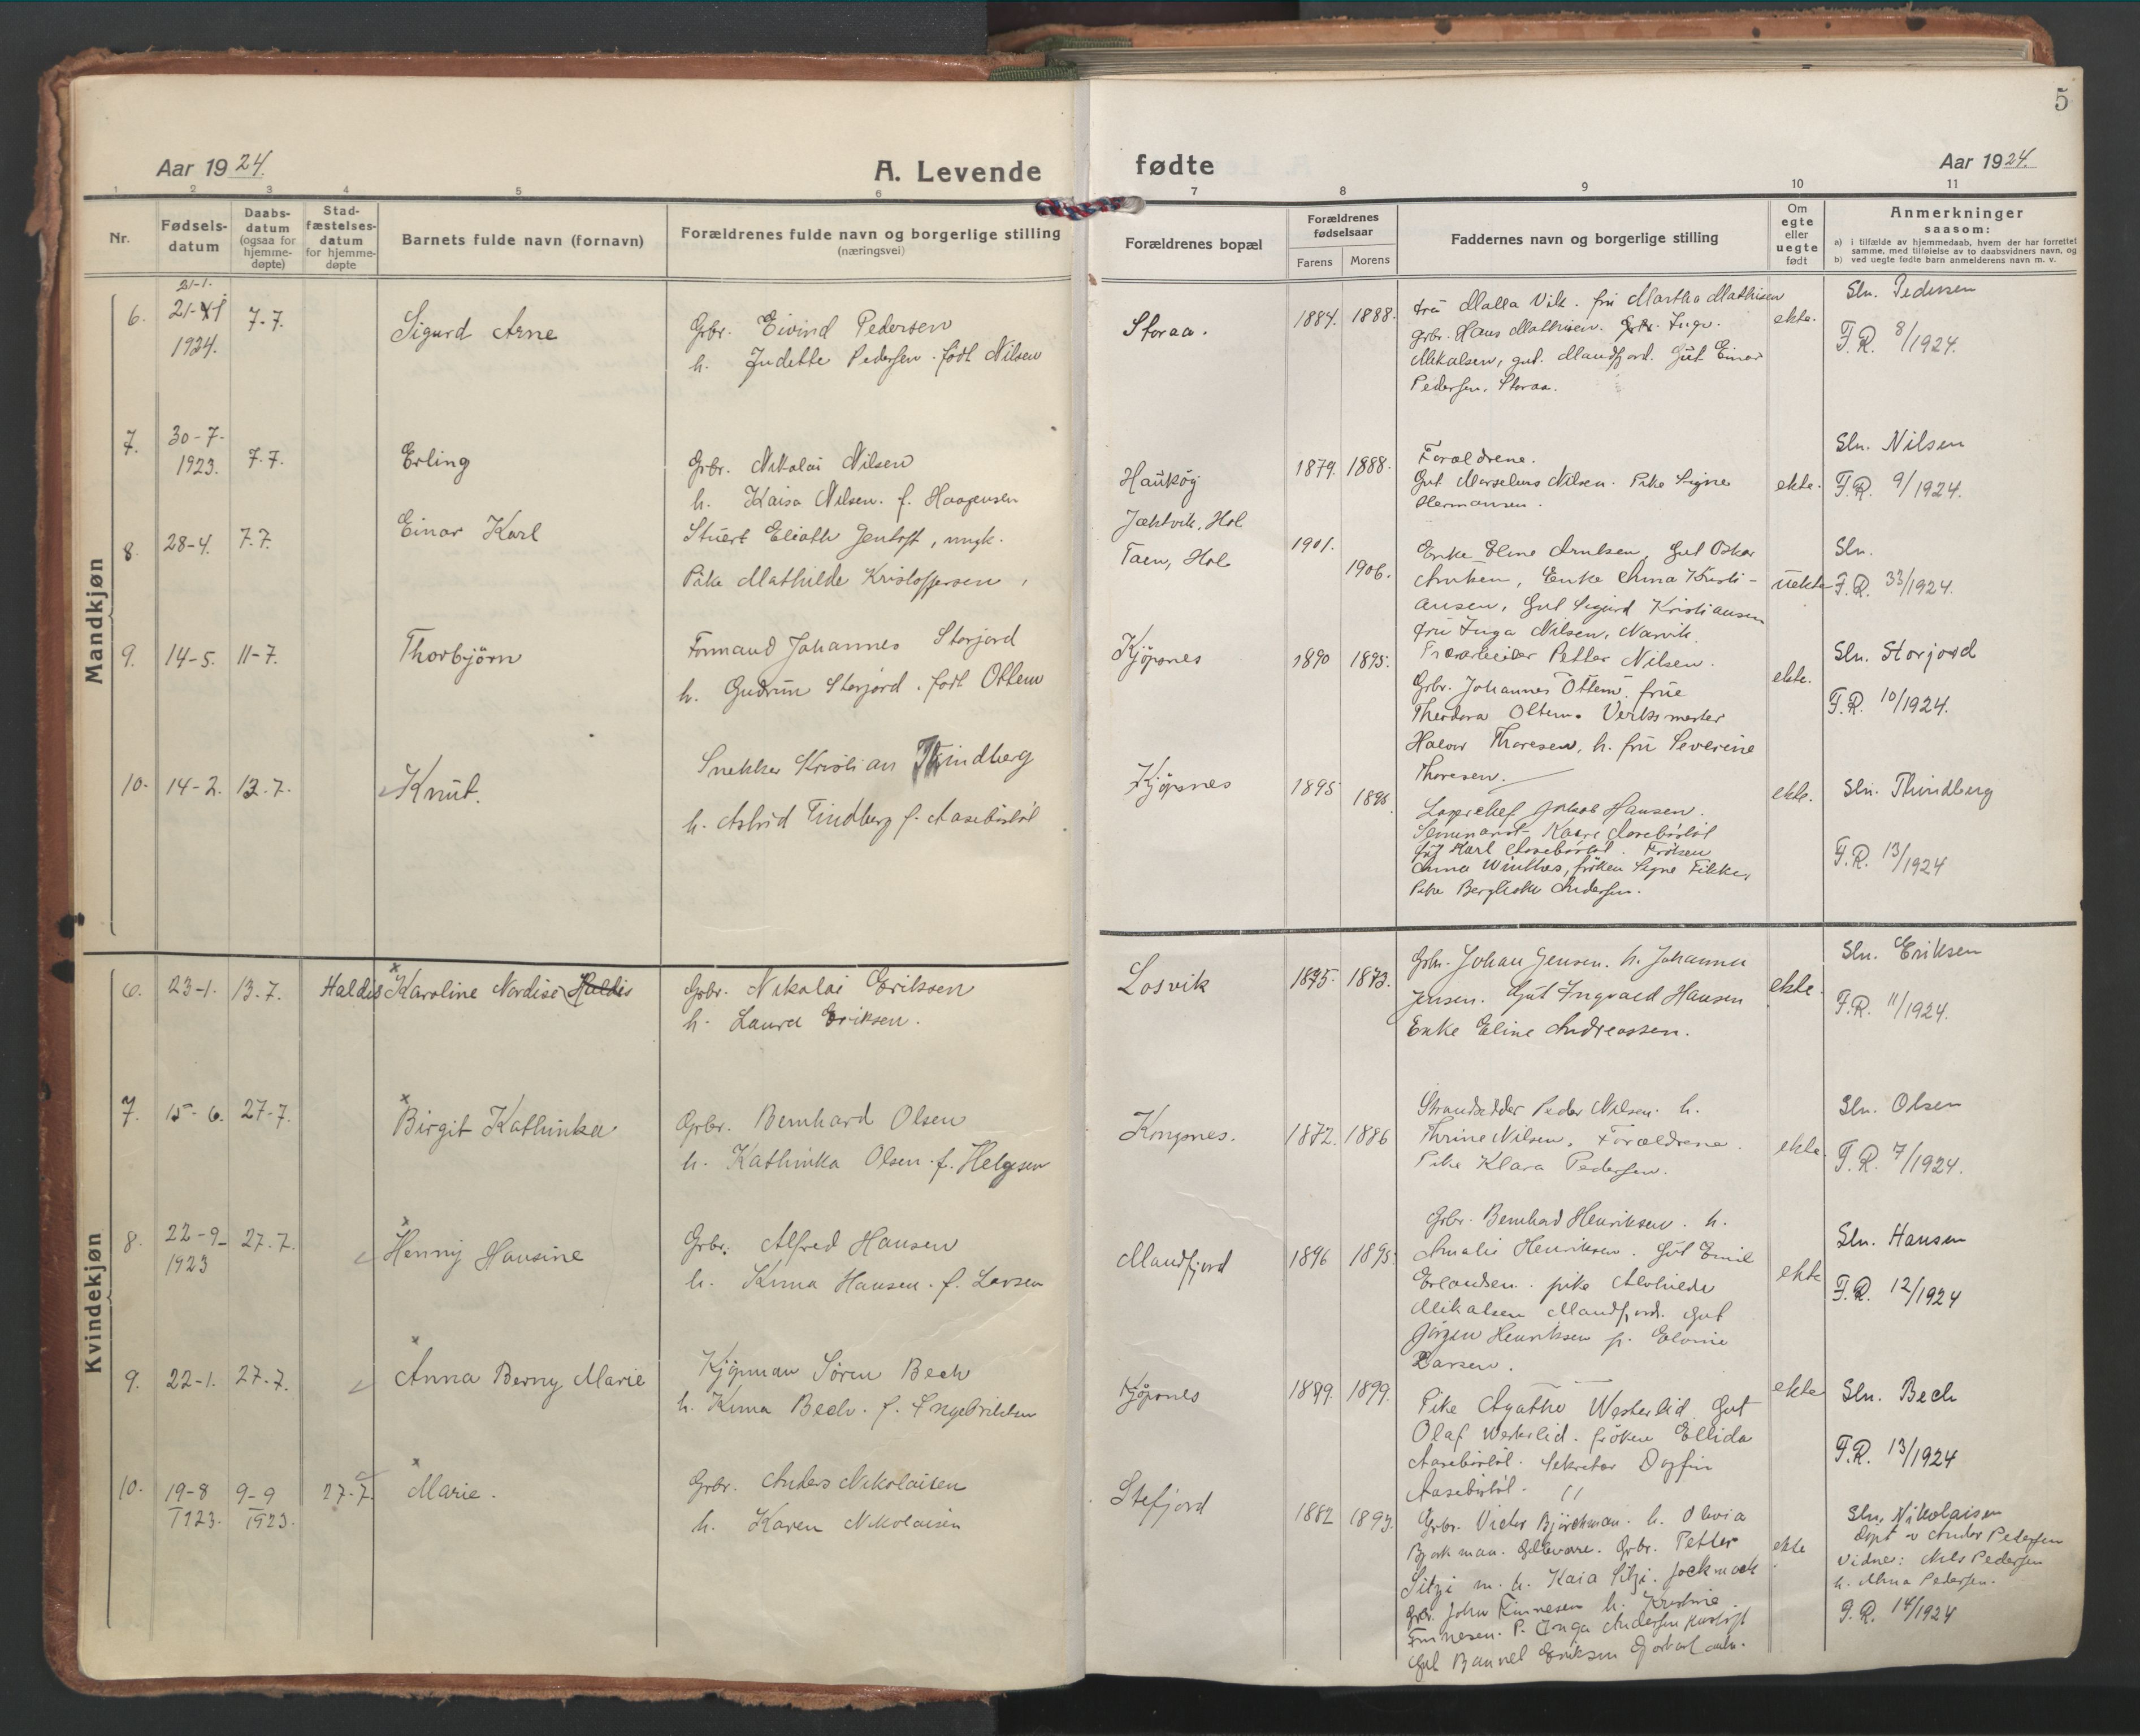 5
Aar 1924.
A. Levende
fødte
Aar 1924.
1 2 3 4 5 6 7 8 9 10 11
Nr.
Fødsels-
datum
Daabs-
datum
(ogsaa for
hjemme-
døpte)
Stad-
fæstelses-
datum
for hjemme-
døpte
Barnets fulde navn (fornavn)
Forældrenes fulde navn og borgerlige stilling
(næringsvei)
Forældrenes bopæl
Forældrenes
fødselsaar
Farens Morens
Faddernes navn og borgerlige stilling
Om
egte
eller
uegte
født
Anmerkninger
saasom:
a) i tilfælde av hjemmedaab, hvem der har forrettet
samme, med tilføielse av to daabsvidners navn, og
b) ved uegte fødte barn anmelderens navn m. v.
Mandkjøn
6.
21-1.
1924.
7-7.
Sigurd Arne
Grbr. Eivind Pedersen
h. Judette Pedersen. født Nilsen
Storaa.
1884. 1888.
fru Malla Vik. fru Martha Mathisen
Grbr. Hans Mathisen. Grbr. Ingv.
Mikalsen, gut. Mandfjord. Gut Einar
Pedersen, Storaa.
ekte.
Sln. Pedersen
F.R. 8/1924.
7.
30-7-
1923.
7.7.
Erling
Grbr. Nikolai Nilsen
h. Kaisa Nilsen. f. Haagensen
Haukøy
1879. 1888.
Forældrene.
Gut Marselius Nilsen. Pike Signe
Hermansen.
ekte.
Sln. Nilsen
F.R. 9/1924.
8.
28-4.
7.7.
Einar Karl
Stuert Eliath Jentoft, ungk.
Pike Mathilde Kristoffersen,
Jæktvik, Hol
Taen, Hol
1901.
1906.
Enke Eline Arntsen, Gut Oskar
Arntsen, Enke Anna Kristi-
ansen, Gut Sigurd Kristiansen
fru Inga Nilsen, Narvik.
uekte
Sln.
F.R. 33/1924.
9.
14-5.
11-7.
Thorbjörn
Formand Johannes Storjord
h. Gudrun Storjord. født Ottem
Kjöpsnes
1890 1895.
Petter Nilsen.
Grbr. Johannes Ottem. frue
Theodora Ottem. Verksmester
Halvor Thoresen, h. fru Severine
Thoresen.
ekte.
Sln. Storjord
F.R. 10/1924.
10.
14-2.
13.7.
Knut.
Snekker Kristian Thindberg
h. Astrid Tindberg f. Aasebøstøl
Kjöpsnes
1895
Jakob Hansen.
Kaare Aasebøstøl
Karl Aasebøstøl. Fröken
Anna Winther, fröken Signe
Pike Bergliott Andersen.
ekte.
Sln. Thindberg
F.R. 13/1924
Kvindekjøn
6.
23-1.
13.7.
Haldis Karoline Nordise Haldis
Grbr. Nikolai Eriksen
h. Laura Eriksen.
Losvik
1875. 1873.
Grbr. Johan Jensen. h. Johanna
Jensen. Gut Ingvald Hansen
Enke Eline Andreassen.
ekte.
Sln. Eriksen
F.R. 11/1924.
7.
15-6.
27-7.
Birgit Kathinka
Grbr. Bernhard Olsen
h. Kathinka Olsen. f. Helgesen
Kongsnes.
1872. 1886
Strandsidder Peder Nilsen. h.
Thrine Nilsen. Forældrene.
Pike Klara Pedersen.
ekte.
Sln. Olsen
F.R. 7/1924.
8.
22-9-
1923
27.7.
Henny Hansine
Grbr. Alfred Hansen
h. Kinna Hansen. f. Larsen
Mandfjord
1896 1895
Grbr. Bernhard Henriksen. h.
Amalie Henriksen. Gut Emil
Erlandsen. pike Alvhilde
Mikalsen Mandfjord. Gut
Jörgen Henriksen p. Elvine
Larsen.
ekte
Sln. Hansen
F.R. 12/1924
9.
22-1.
27-7.
Anna Berny Marie
Kjöpman Sören Bech
h. Kinna Bech. f. Ingebriktsen
Kjöpsnes
1899. 1899.
Pike Agathe Westerlid Gut
Olaf Westerlid. fröken Ellida
Aasebøstøl. Sekretær Dagfin
Aasebøstøl. "
ekte
Sln. Bech
F.R. 13/1924
10.
19-8
1923.
9-9
1923.
27-7.
Marie.
Grbr. Anders Nikolaisen
h. Karen Nikolaisen
Stefjord
1882 1893.
Grbr. Victor Björkman. h. Olovia
Bjorkman. Gellevare. Grbr. Petter
Sitzi m. h. Kaia Sitzi. Jockmock
Grbr. John Finnesen h. Kristine
Finnesen. P. Inga Andersen
Gut Eriksen
ekte
Sln. Nikolaisen
döpt v Andor Pedersen
Vidne: Nils Pedersen
h. Alma Pedersen.
F.R. 14/1924